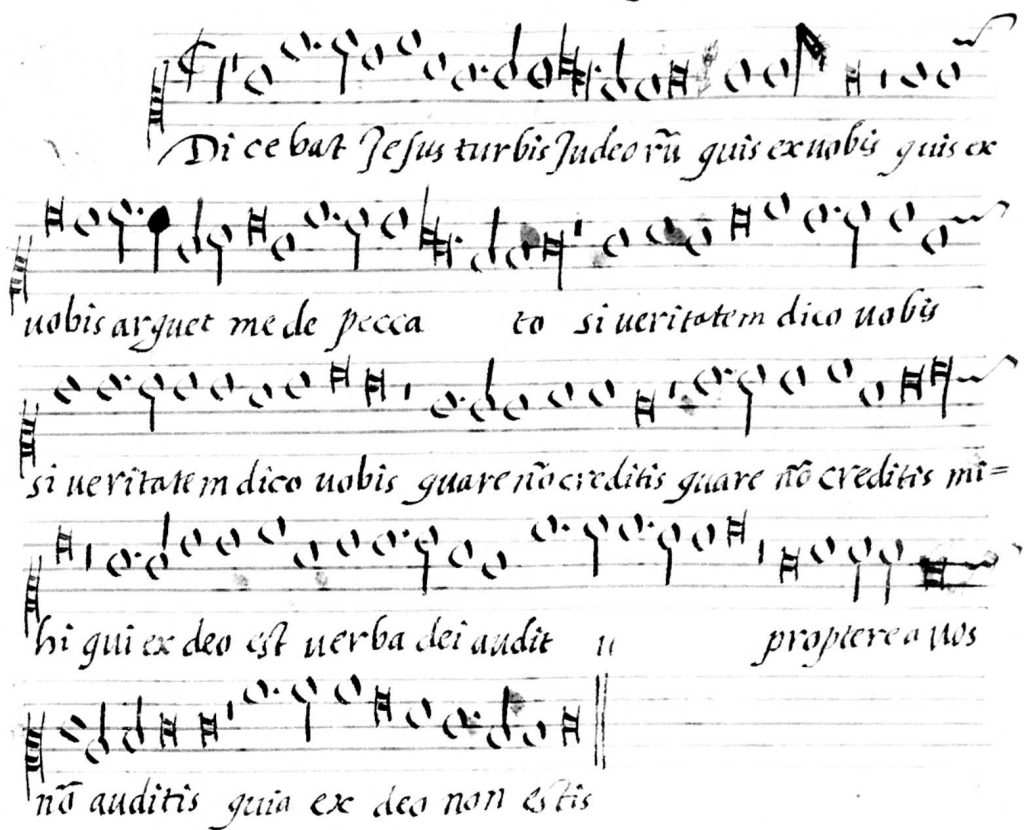 Dicebat Jesus turbis Judeorū quis ex uobis quis ex
uobis arguet me de pecca to si ueritatem dico uobis
si ueritatem dico uobis quare nō creditis quare nō creditis mi=
hi qui ex deo est uerba dei audit ıı propterea uos
nō auditis quia ex deo non estis